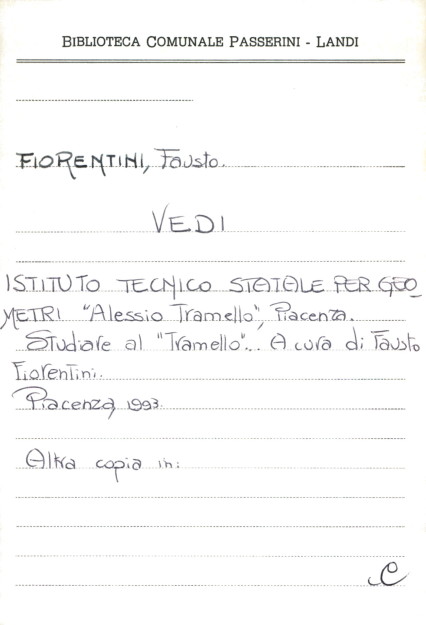 BIBLIOTECA COMUNALE PASSERINI - LANDI
FIORENTINI, Fausto.
VEDI
ISTITUTO TECNICO STATALE PER GEO_
METRI "Alessio Tramello", Piacenza.
Studiare al "Tramello"... A cura di Fausto
Fiorentini.
Piacenza, 1993.
Altra copia in:
C